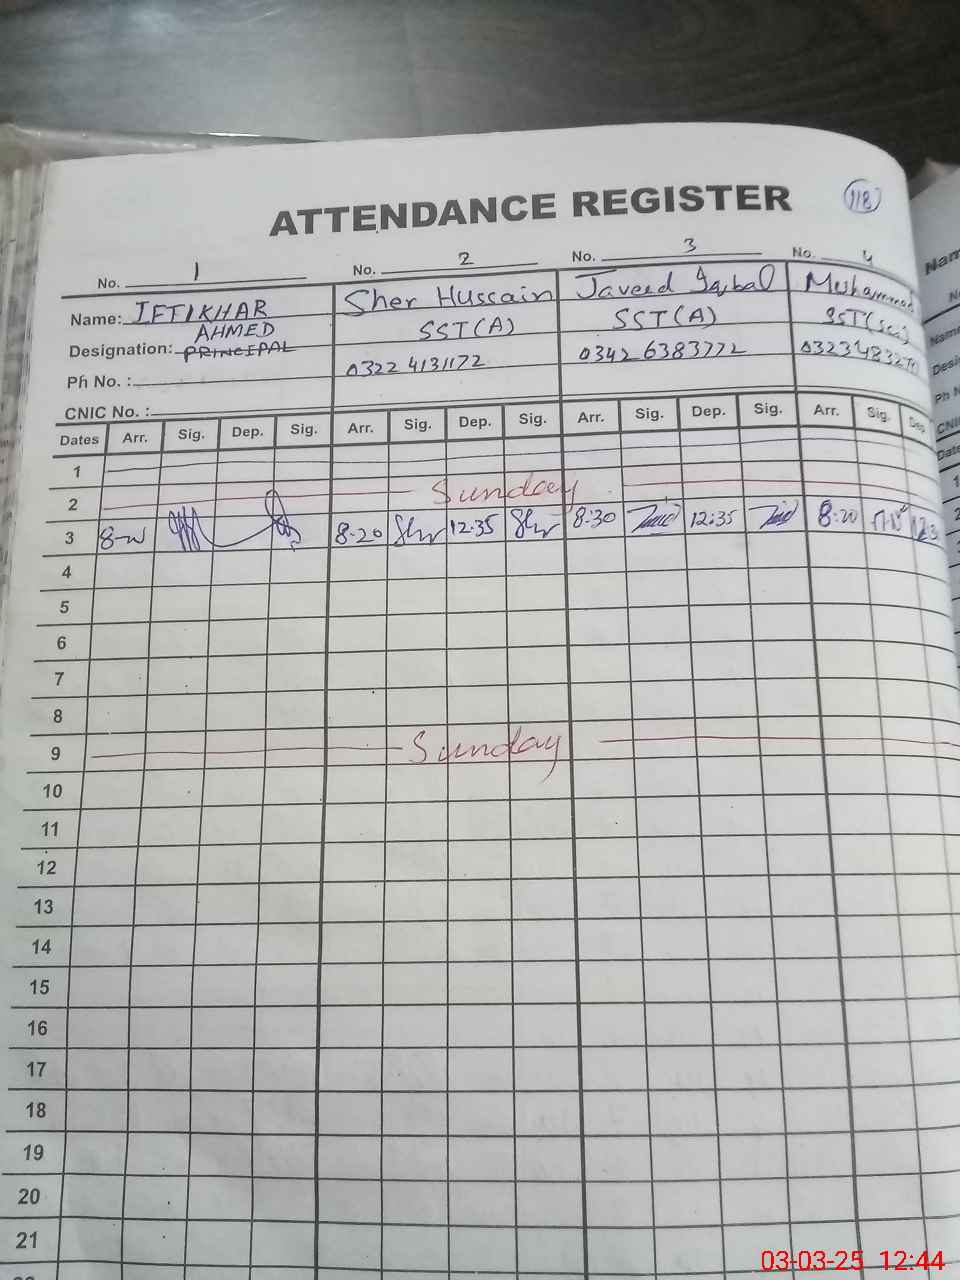 ATTENDANCE REGISTER
118
No. 1
No. 2
No. 3
No. 4
Name: IFTIKHAR AHMED
Sher Hussain
Javeed Iqbal
Muhammad
Designation: PRINCIPAL
SST(A)
SST(A)
SST(Sci)
Ph No. :
0322 4131172
0342 6383772
CNIC No. :
Dates Arr. Sig. Dep. Sig. Arr. Sig. Dep. Sig. Arr. Sig. Dep. Sig. Arr. Sig. Dep
1
2 Sunday
3 8:20 12:35 8:30 12:35 8:20
4
5
6
7
8
9 Sunday
10
11
12
13
14
15
16
17
18
19
20
21
Nam
Name
Desi
Ph N
CNI
Date
03-03-25 12:44